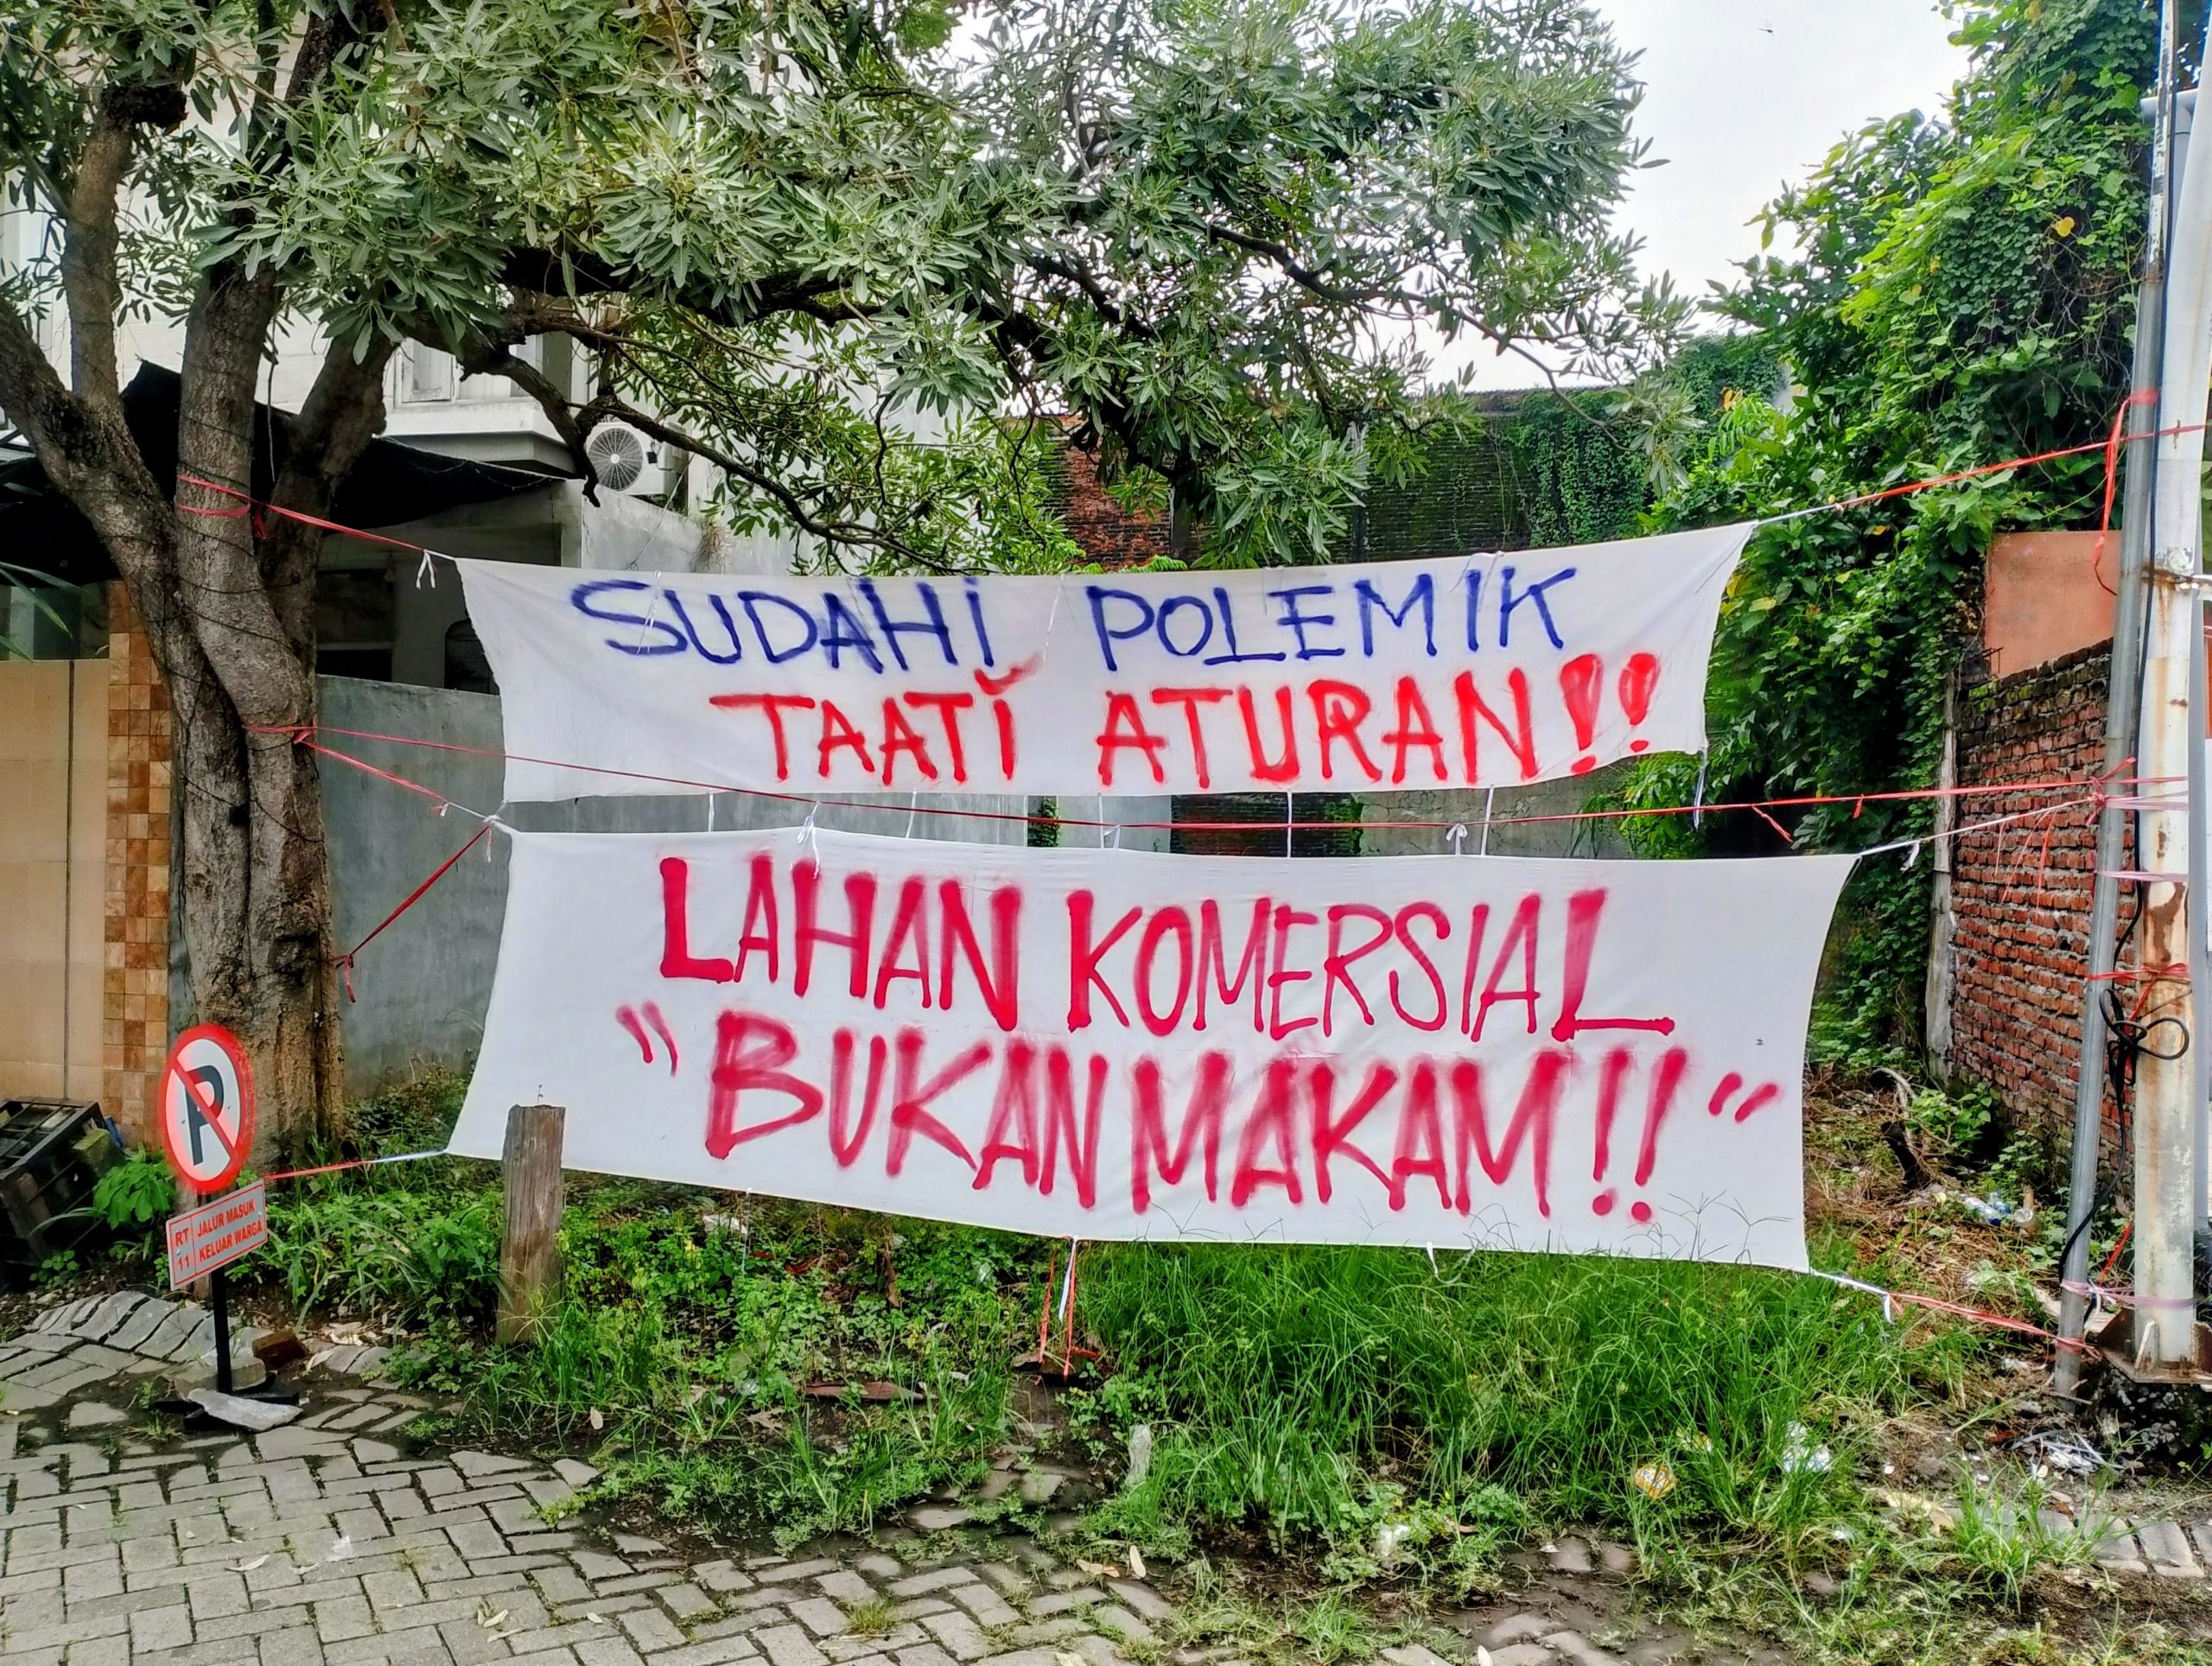 SUDAHi POLEMIK
TAATi ATURAN!!
LAHAN KOMERSIAL
"BUKAN MAKAM!!"
P
RT 11
JALUR MASUK
KELUAR WARGA